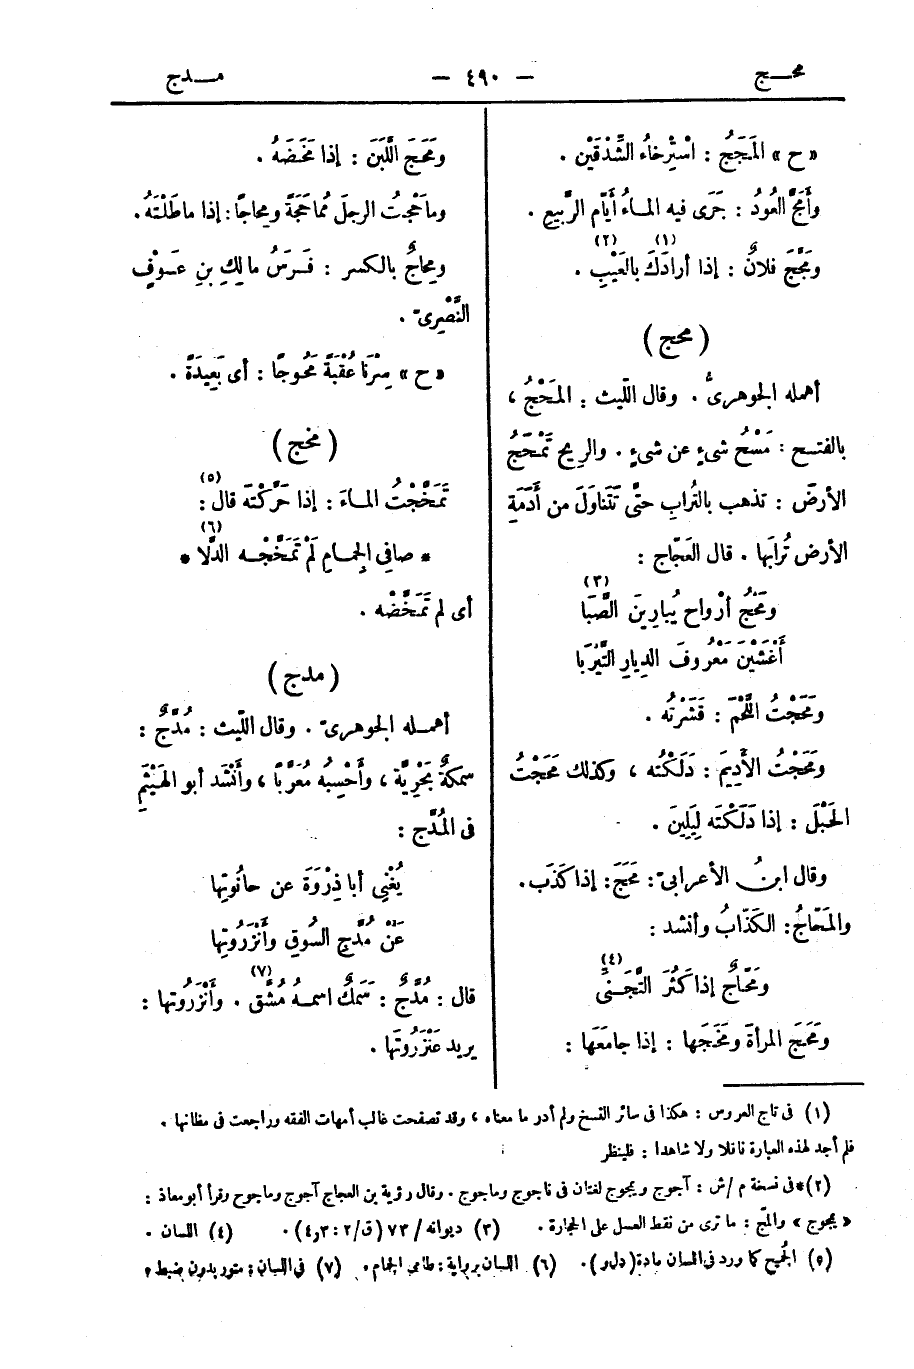 محج — ٤٩٠ — مدج
«ح» المَجَجُ : اسْتِرْخاءُ الشِّدْقَيْنِ .
وأَمَجَّ العُودُ : جَرَى فيه الماءُ أَيّامَ الرَّبِيعِ .
ومَجَّجَ فلانٌ : إذا أرادَكَ (١) بالعَيْبِ (٢) .
(محج)
أهمله الجوهرىُّ . وقال اللّيث : المَحْجُ ،
بالفتح : مَسْحُ شىءٍ عن شىءٍ . والريح تَمْحَجُ
الأرضَ : تذهب بالتُراب حتَّى تَتَناوَلَ من أَدَمَةِ
الأرض تُرابَها . قال العَجّاج :
ومَحْجُ أرْواحٍ يُبارِينَ الصَّبَا (٣)
أَغْشَيْنَ مَعْرُوفَ الدِيارِ التَّيْرَبا
ومَحَجْتُ اللَّحْمَ : قَشَرْتُه .
ومَحَجْتُ الأَدِيمَ : دَلَكْتُه ، وكذلك مَحَجْتُ
الحَبْلَ : إذا دَلَكْتَه لِيَلِينَ .
وقال ابنُ الأعرابىّ : مَحَجَ : إذا كَذَب .
والمَحّاجُ : الكَذّابُ وأنشد :
ومَحّاجٌ إذا كَثُرَ التَّجَنِّى (٤)
ومَحَجَ المرأةَ ومَخَجَها : إذا جامَعَها :
ومَحَجَ اللَّبَنَ : إذا مَخَضَهُ .
وماحَجْتُ الرجلَ مُماحَجَةً ومِحاجًا : إذا ماطَلْتَهُ .
ومِحاجٌ بالكسر : فَرَسُ مالِكِ بنِ عَوْفٍ
النَّصْرِىّ .
«ح» سِرْنَا عُقْبَةً مَحُوجًا : أى بَعِيدَةً .
(مخج)
تَمَخَّجْتُ الماءَ : إذا حَرَّكْتَه قال (٥) :
* صافِى الجِمامِ لَمْ تَمَخَّجْه الدِّلا * (٦)
أى لم تَمَخَّضْه .
(مدج)
أهمله الجوهرىّ . وقال اللّيث : مُدَّجٌ :
سمكةٌ بَحْرِيَّة ، وأَحْسِبُه مُعَرَّبًا ، وأَنْشَد أبو الهَيْثَمِ
فى المُدَّج :
يُغْنِى أبا ذِرْوَةَ عن حانُوتِها
عَنْ مُدَّجِ السُوقِ وأَنْزَرُوتِها
قال : مُدَّجٌ : سَمَكٌ اسمهُ مُشَّق (٧) . وأَنْزَرُوتها :
يريد عَنْزَرُوتَها .
(١) فى تاج العروس : هكذا فى سائر النسخ ولم أدر ما معناه ، وقد تصفحت غالب أمهات الفقه وراجعت فى مظانها .
فلم أجد لهذه العبارة ناقلا ولا شاهدا : فلينظر
(٢) *فى نسخة م/ش : آجوج ويمجوج لغتان فى ياجوج وماجوج . وقال رؤبة بن العجاج آجوج وماجوج وقرأ أبو معاذ :
« يمجوج » والمج : ما ترى من نقط العسل على الحجارة . (٣) ديوانه/٧٣ (ق/٢ : ٣ ، ٤) . (٤) اللسان .
(٥) الجميح كما ورد فى اللسان مادة (دلو) . (٦) اللسان برواية : طامى الجمام . (٧) فى اللسان : متور بدون ضبط .